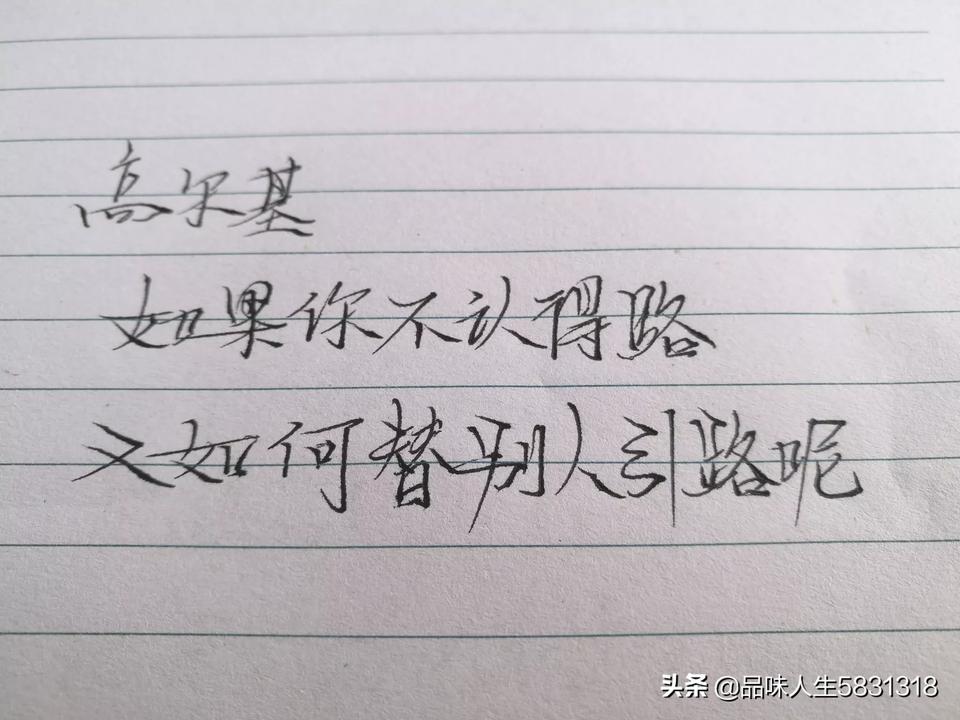 高尔基
如果你不认得路
又如何替别人引路呢
头条 @品味人生5831318